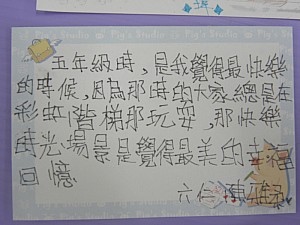 Pig's Studio Pig's Studio
五年級時，是我覺得最快樂
的時候，因為那時的大家總是在
彩虹階梯那玩耍，那快樂
時光場景是覺得最美的幸福
回憶
六仁 陳